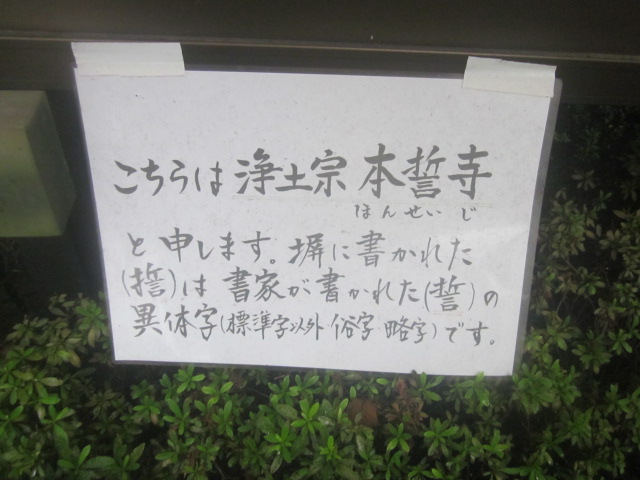 こちらは浄土宗本誓寺
ほんせいじ
と申します。塀に書かれた
(㨂)は書家が書かれた(誓)の
異体字(標準字以外 俗字 略字)です。